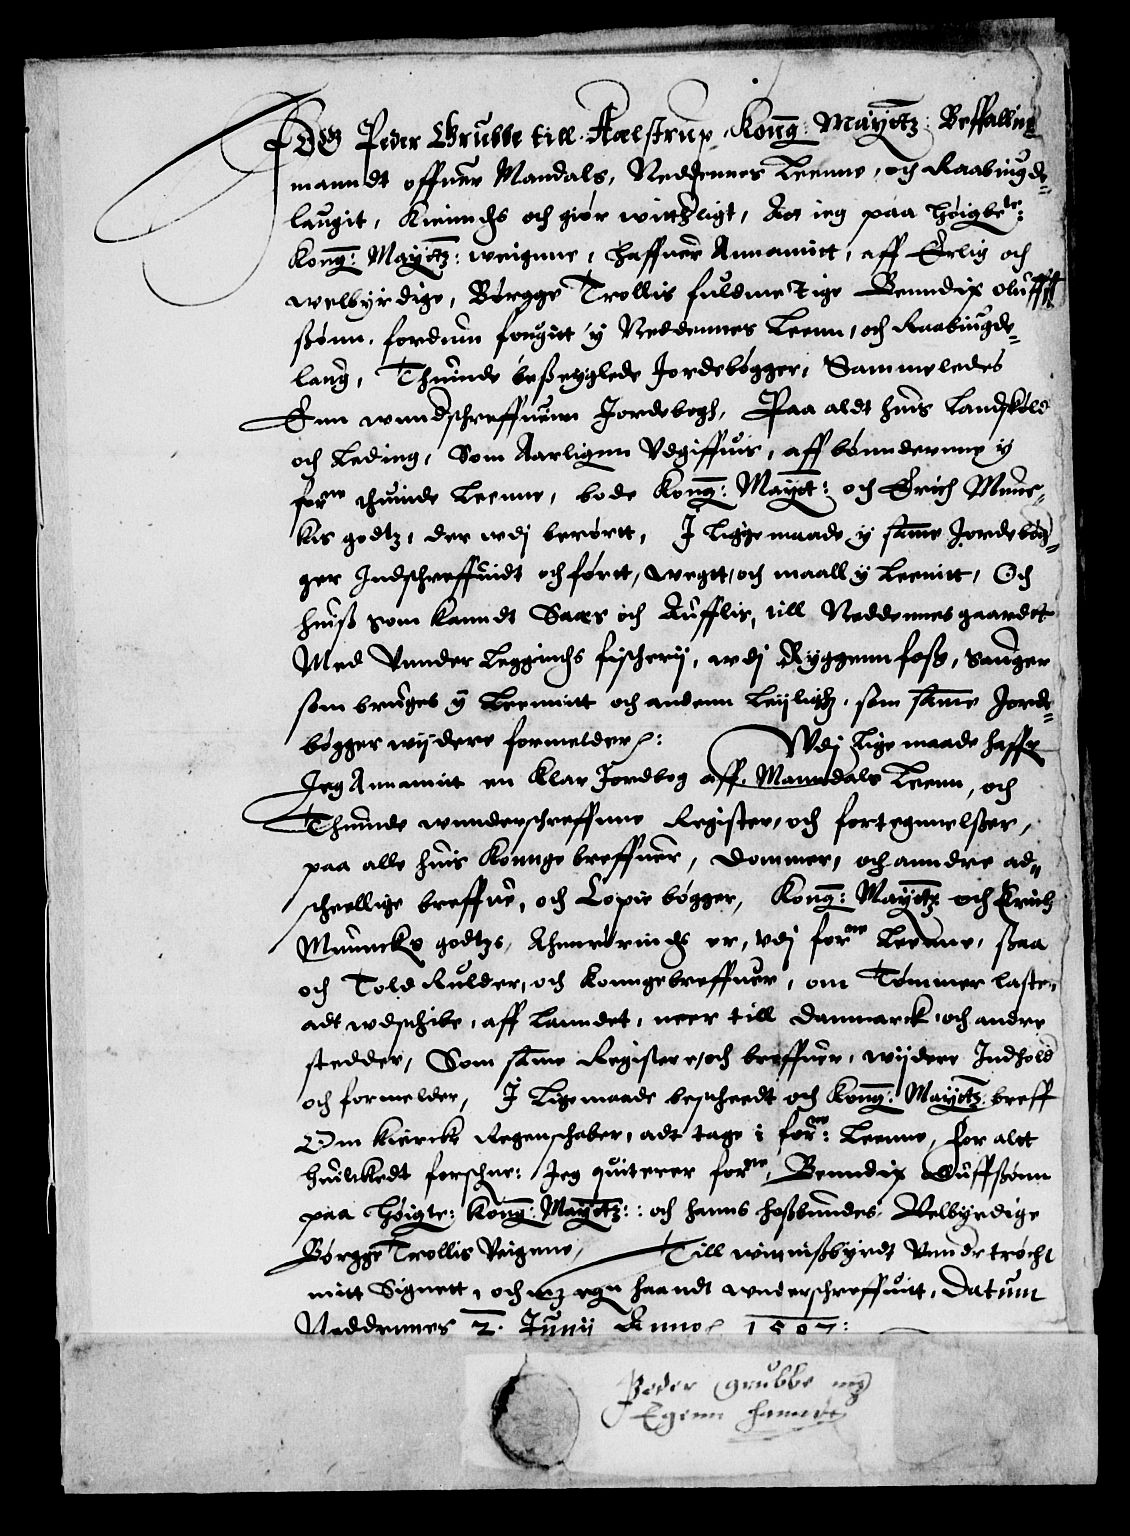 Jeg Peder Grubbe till Aalstrup, Kong: Mayettz: Beffallings
manndt offuer Mandals, Neddennes Leenne, och Raabiugde=
laugit, Kiennes och giør witterligt, Att ieg paa høigbete:
Kong: Mayettz: weignne, haffuer Annamitt, aff Erlig och
welbyrdige, Børgge Trollis fuldmectige Benndix oluff
ßønn, fordum fougitt y Neddennes Leenn, och Raabiugde=
laug, Thuinde beßeyglede Jordebøgger, Sammeledes
Enn wundschreffuenn Jordebogh, Paa aldt huis Landskyld
och Leding, Som Aarligenn Vdgiffuis, aff bønnderenne y
forne thuinde Leenne, bode Kong: Mayett: och Erich Munc=
kis godtz, der wdj berørtt, J lige maade y same Jordebøg=
ger Indschreffuidt och førtt, wegtt, och maall y Leenitt, Och
huiß som kanndt Saaes och Aufflis, till Neddennes gaardt
Med Vnnder Leggindes fischerij, wdj Ryggennfoß, Sauger
som bruges y Leennitt och andenn Leyligh, som same Jorde=
bøgger wijdere formelder: Wdj lige maade haffr
Jeg Annamitt en Klar Jordbog aff Manndals Leenn, och
Thuinde wnnderschreffune Register, och fortegnnelßer,
paa alle huis Konnge breffuer, Dommer, och anndre ad=
schellige breffue, och Copie bøgger, Kong: Mayettz och Erich
Muncks godtzs, Anrørindes er, vdj forne Leenne, ßaa
och Told Rulder, och Konngebreffuer, om Tømmer laste,
adt wdschibe, aff Lanndet, neer till Danmarck och andre
stedder, Som same Register, och breffuer, wijdere Indhold
och formelder, J Ligemaade beschedt och Kong: Mayettz: breff
Om Kiercke Regenschaber, adt tage i forne: Leenne, for altt
huilckedt forschne: Jeg quiterer forne, Benndix Oluffßønn
paa høigte: Kong: Mayettz: och hanns hoßbundes, Velbyrdige
Børgge Trollis Veigne, Till winnißbyrdt Vnnder trøcht
mitt Signett, och mz egn haandt wnderschreffuitt, Datum
Neddennes 2. Junij Anno 1597:
Peder Grubbe mz
Egenn haanndt